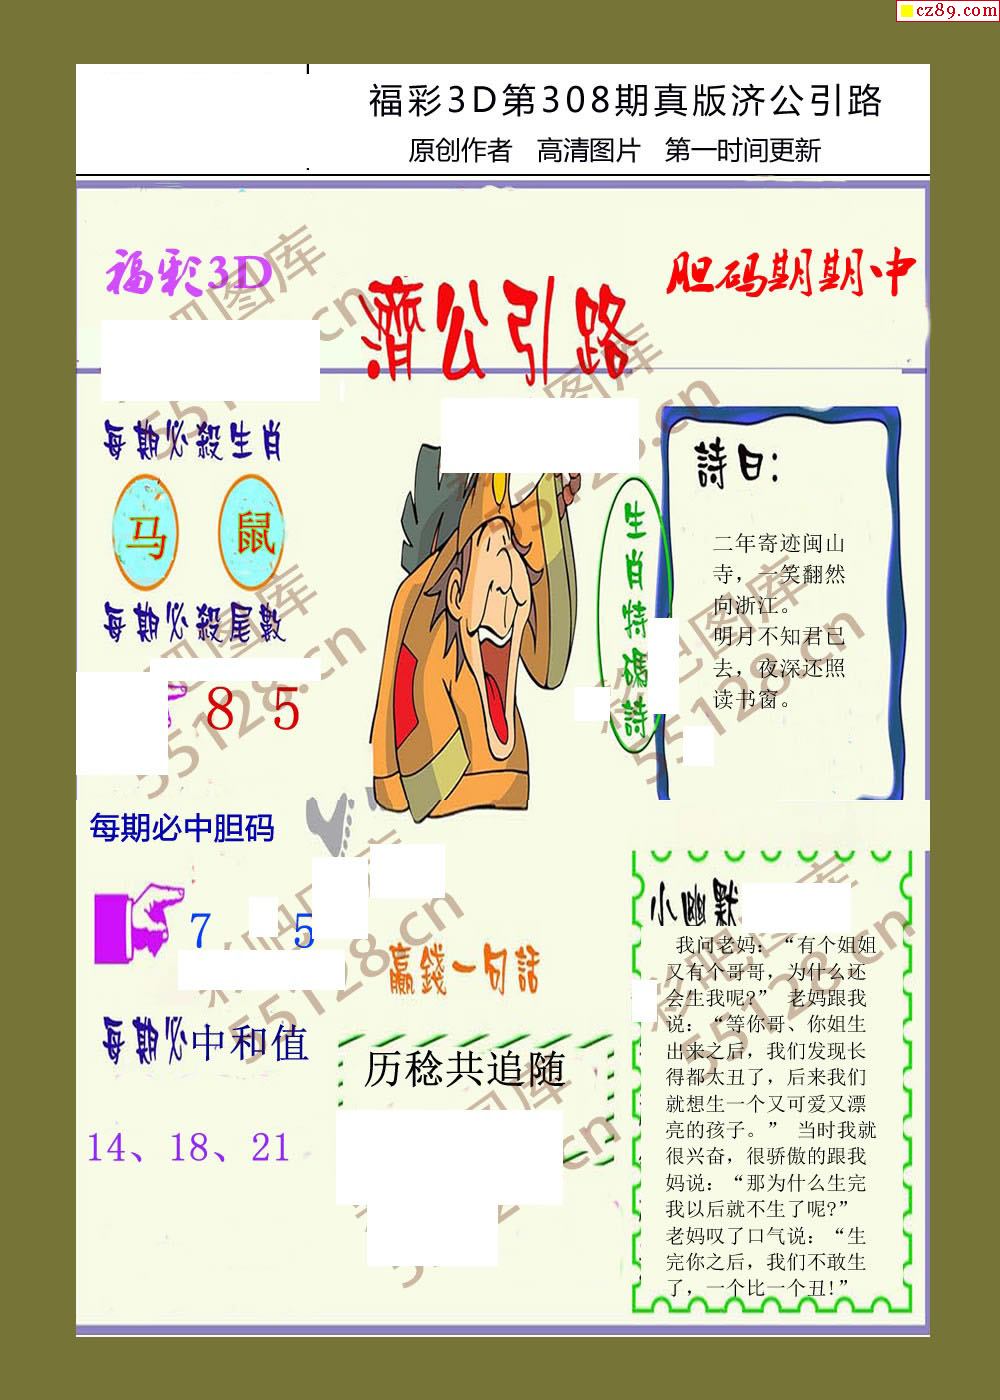 cz89.com
福彩3D第308期真版济公引路
原创作者 高清图片 第一时间更新
福彩3D
濟公引路
胆码期期中
每期必殺生肖
马 鼠
每期必殺尾數
8 5
生肖特碼詩
詩曰：
二年寄迹闽山
寺，一笑翻然
向浙江。
明月不知君已
去，夜深还照
读书窗。
每期必中胆码
7 5
每期必中和值
14、18、21
贏錢一句話
历稔共追随
小幽默
我问老妈：“有个姐姐
又有个哥哥，为什么还
会生我呢?” 老妈跟我
说：“等你哥、你姐生
出来之后，我们发现长
得都太丑了，后来我们
就想生一个又可爱又漂
亮的孩子。” 当时我就
很兴奋，很骄傲的跟我
妈说：“那为什么生完
我以后就不生了呢?”
老妈叹了口气说：“生
完你之后，我们不敢生
了，一个比一个丑!”
彩吧图库
55128.cn